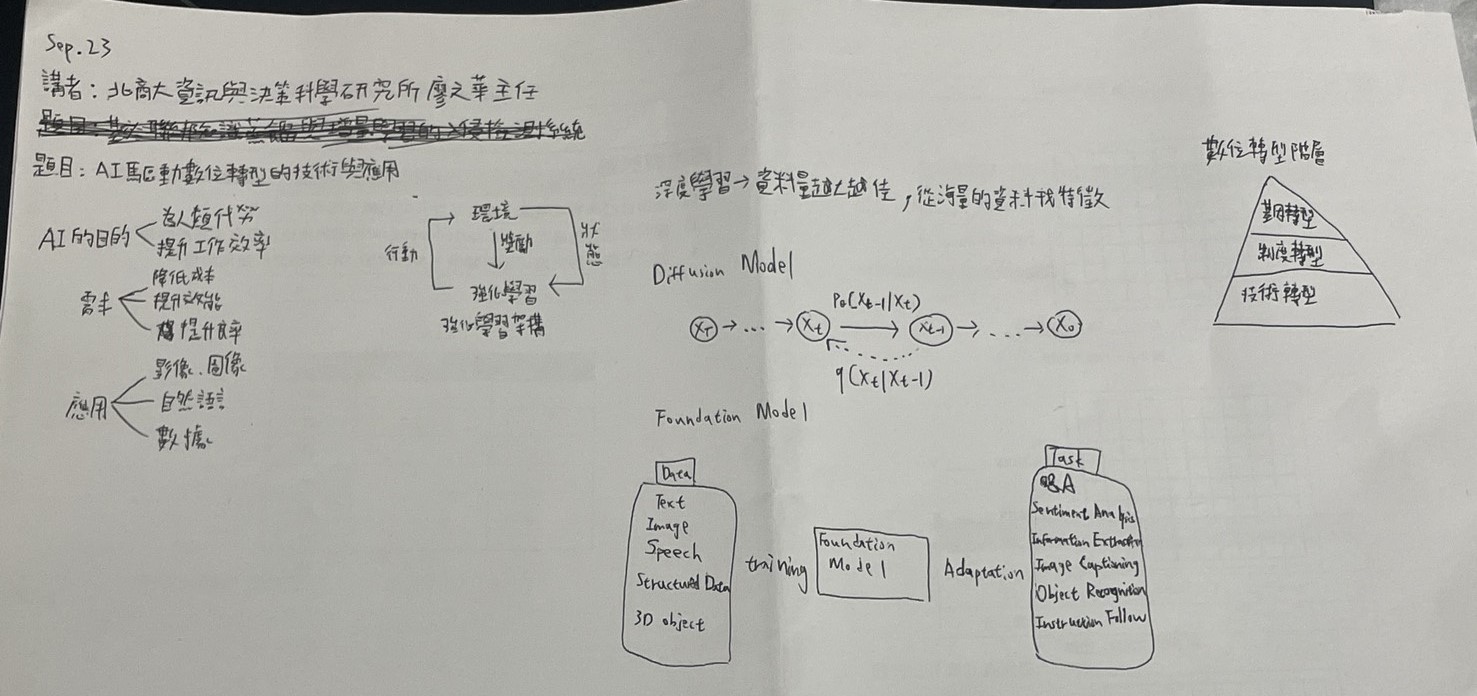 Sep.23
講者：北商大資訊與決策科學研究所廖文華主任
題目：AI驅動數位轉型的技術與應用
AI的目的
為人類代勞
提升工作效率
需求
降低成本
提升效能
提升良率
應用
影像、圖像
自然語言
數據
環境
行動
獎勵
狀態
強化學習
強化學習架構
深度學習→資料量越大越佳，從海量的資料找特徵
Diffusion Model
Pθ(Xt-1|Xt)
XT → … → Xt → Xt-1 → … → X0
q(Xt|Xt-1)
Foundation Model
Data
Text
Image
Speech
Structured Data
3D object
training
Foundation
Model
Adaptation
Task
Q&A
Sentiment Analysis
Information Extraction
Image Captioning
Object Recognition
Instruction Follow
數位轉型階層
制度轉型
技術轉型